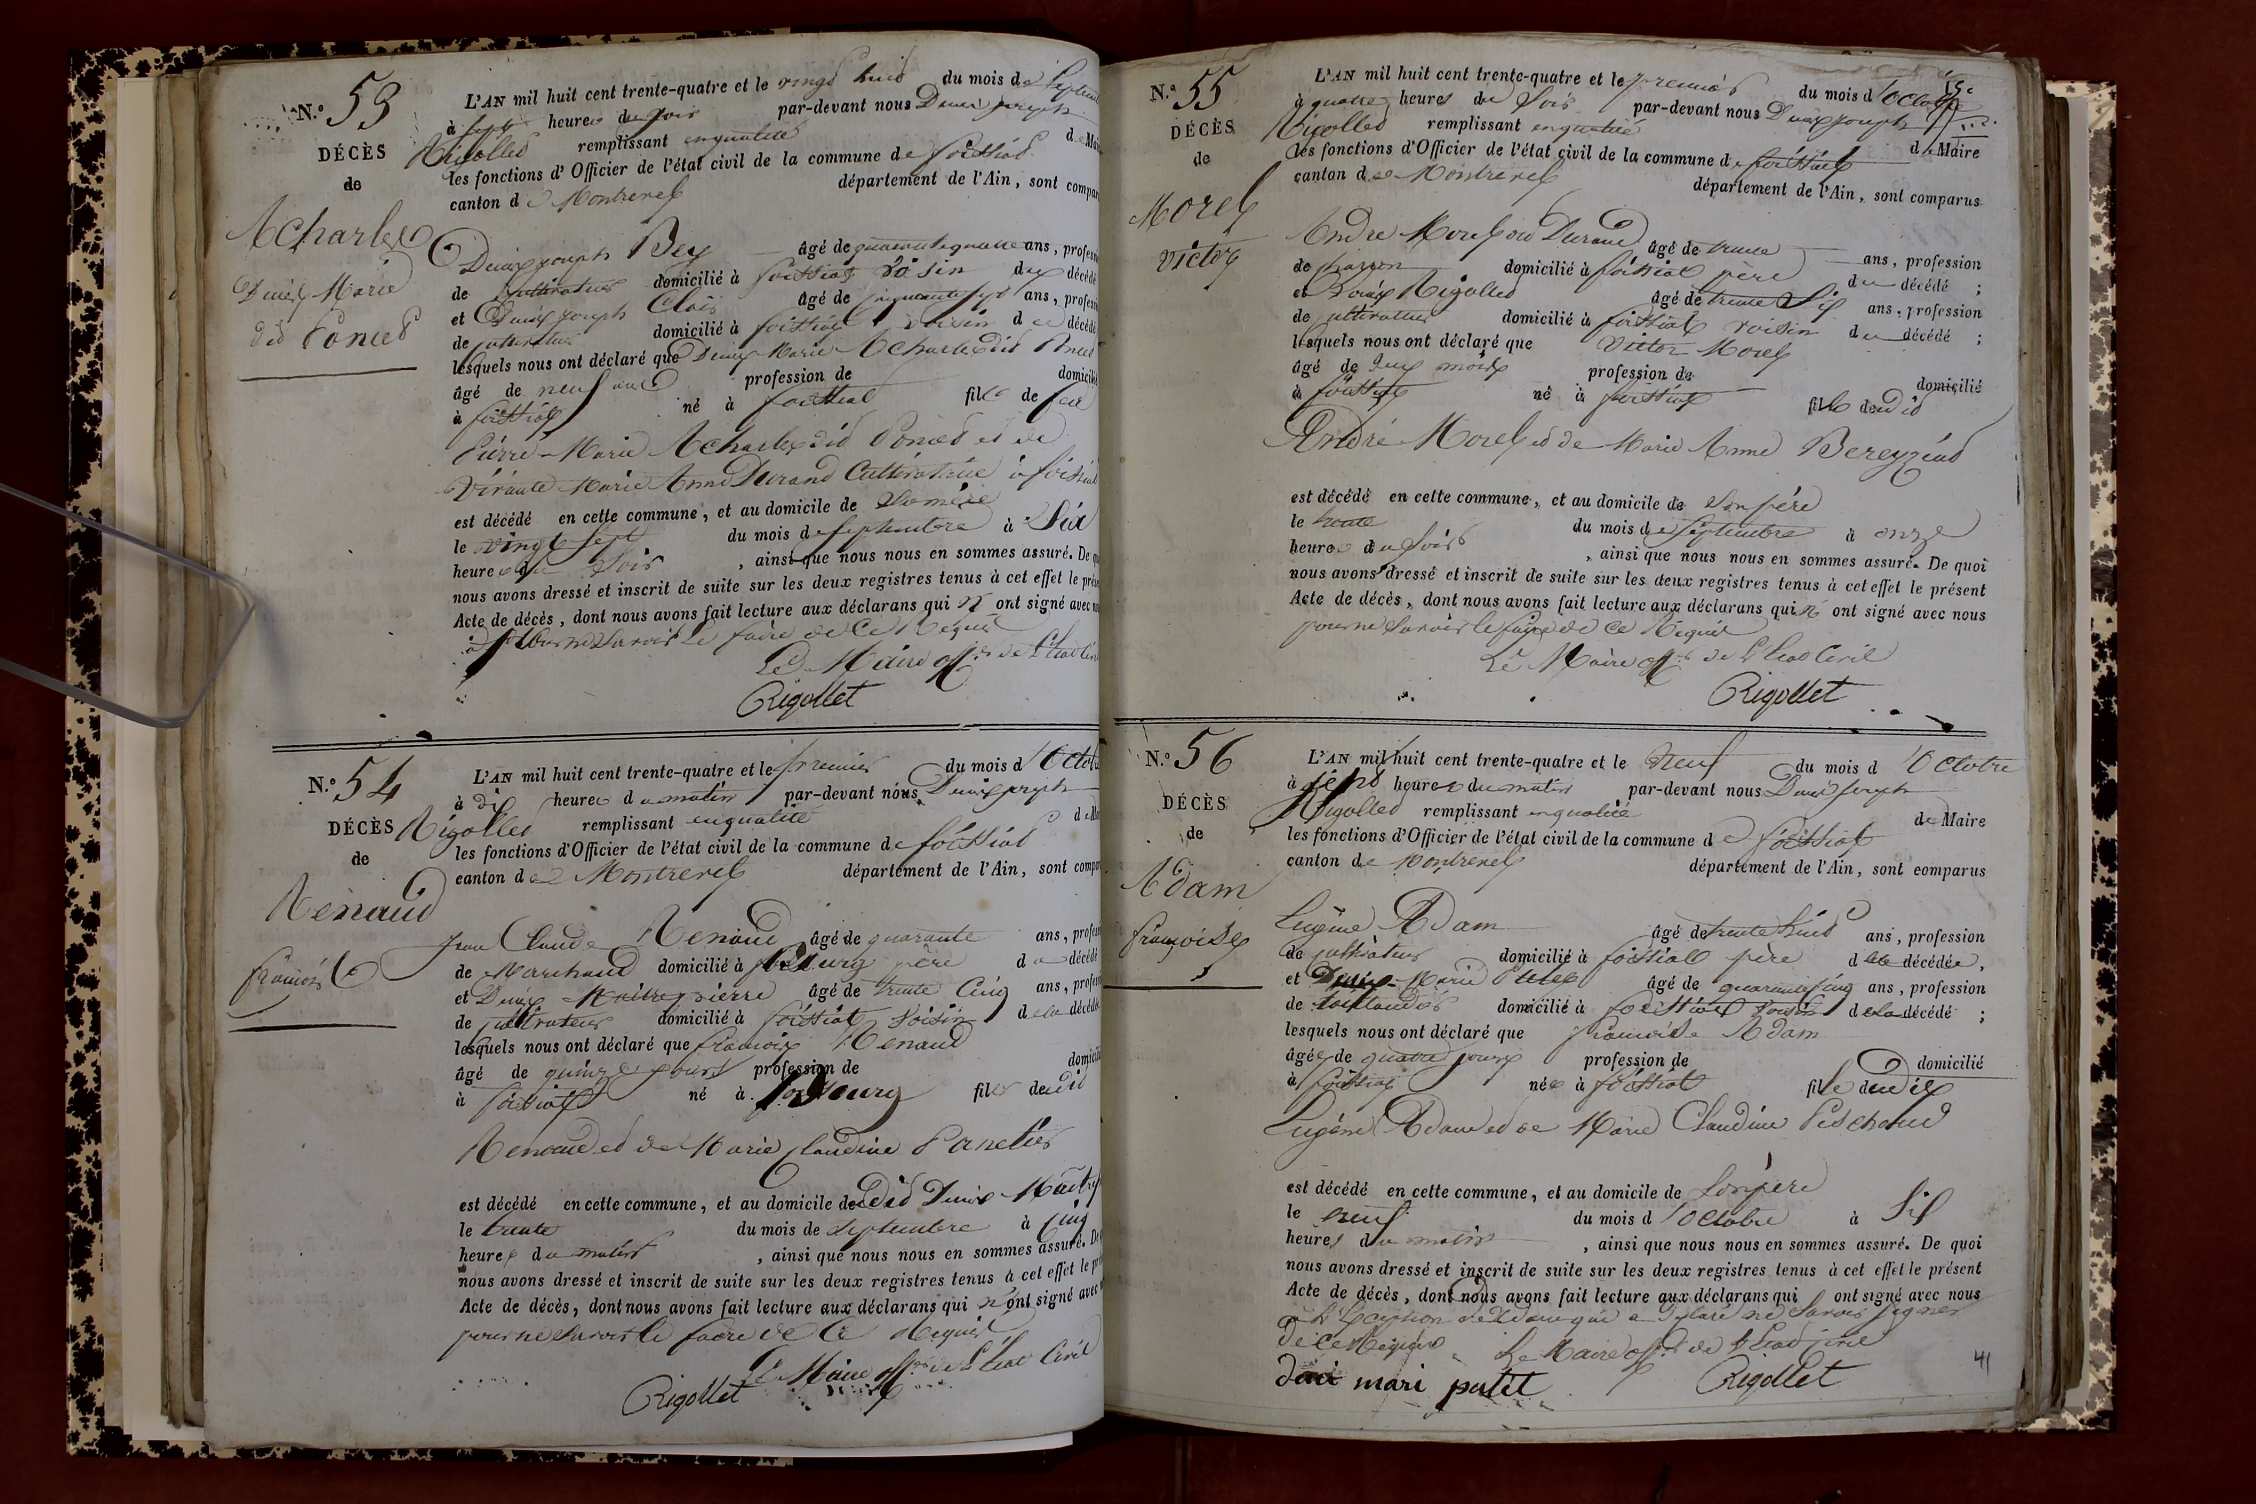 N.º 53
DÉCÈS
de
Acharlex
Denis Marie
dit Poncet
L'AN mil huit cent trente-quatre et le vingt huit du mois de Septem
à sept heures du soir par-devant nous Denis Joseph
Rigollet remplissant en qualité de Mai
les fonctions d'Officier de l'état civil de la commune de foissiat
canton de Montrevel département de l'Ain, sont compar
Denis Joseph Bey âgé de quarante quatre ans, profess
de cultivateur domicilié à foissiat voisin du décédé
et Denis Joseph Clair âgé de cinquante sept ans, profess
de cultivateur domicilié à foissiat voisin du décédé
lesquels nous ont déclaré que Denis Marie Acharlex dit Poncet
âgé de neuf ans profession de domicilié
à foissiat né à foissiat fils de feu
Pierre Marie Acharlex dit Poncet et de
vivante Marie Anne Durand Cultivatrice à foissiat
est décédé en cette commune, et au domicile de Sa mère
le vingt sept du mois de septembre à Six
heures du Soir , ainsi que nous nous en sommes assuré. De qu
nous avons dressé et inscrit de suite sur les deux registres tenus à cet effet le prése
Acte de décès, dont nous avons fait lecture aux déclarans qui n' ont signé avec no
pour ne Savoir le faire de Ce Requis
Le Maire off.er de l'Etat Civil
Rigollet
N.º 54
DÉCÈS
de
Renaud
françois
L'AN mil huit cent trente-quatre et le premier du mois d'Octob
à dix heures du matin par-devant nous Denis Joseph
Rigollet remplissant en qualité de Ma
les fonctions d'Officier de l'état civil de la commune de foissiat
canton de Montrevel département de l'Ain, sont compar
Jean Claude Renaud âgé de quarante ans, profess
de Marchand domicilié à Bourg père du décédé
et Denis Maitrepierre âgé de trente Cinq ans, profess
de cultivateur domicilié à foissiat voisin de la décédé
lesquels nous ont déclaré que françois Renaud
âgé de quinze jours profession de domicilié
à foissiat né à Bourg fils dudit
Renaud et de Marie Claudine Panetier
est décédé en cette commune, et au domicile dudit Denis Maitre
le trente du mois de septembre à Cinq
heures du matin , ainsi que nous nous en sommes assuré. De
nous avons dressé et inscrit de suite sur les deux registres tenus à cet effet le pr
Acte de décès, dont nous avons fait lecture aux déclarans qui n' ont signé avec
pour ne Savoir le faire de Ce Requis
Le Maire off.er de l'Etat Civil
Rigollet
N.º 55
DÉCÈS
de
Morel
Victor
L'AN mil huit cent trente-quatre et le premier du mois d'Octobre
à quatre heures du Soir par-devant nous Denis Joseph
Rigollet remplissant en qualité de Maire
les fonctions d'Officier de l'état civil de la commune de foissiat
canton de Montrevel département de l'Ain, sont comparus
André Morel ou Durand âgé de trente ans, profession
de domicilié à foissiat père du décédé ;
et Denis Rigollet âgé de trente Six ans, profession
de cultivateur domicilié à foissiat voisin du décédé ;
lesquels nous ont déclaré que Victor Morel
âgé de deux mois profession de domicilié
à foissiat né à foissiat fils dudit
André Morel et de Marie Anne Bereyziat
est décédé en cette commune, et au domicile de Son père
le trente du mois de Septembre à onze
heures du Soir , ainsi que nous nous en sommes assuré. De quoi
nous avons dressé et inscrit de suite sur les deux registres tenus à cet effet le présent
Acte de décès, dont nous avons fait lecture aux déclarans qui n' ont signé avec nous
pour ne Savoir le faire de Ce Requis
Le Maire off.er de l'Etat Civil
Rigollet
N.º 56
DÉCÈS
de
Adam
françoise
L'AN mil huit cent trente-quatre et le neuf du mois d'Octobre
à sept heures du matin par-devant nous Denis Joseph
Rigollet remplissant en qualité de Maire
les fonctions d'Officier de l'état civil de la commune de foissiat
canton de Montrevel département de l'Ain, sont comparus
Eugène Adam âgé de trente huit ans, profession
de cultivateur domicilié à foissiat père de la décédée,
et Denis Marie Putet âgé de quarante cinq ans, profession
de domicilié à foissiat voisin de la décédé ;
lesquels nous ont déclaré que françoise Adam
âgée de quatre jours profession de domicilié
à foissiat née à foissiat fille dudit
Eugène Adam et de Marie Claudine Pichoud
est décédé en cette commune, et au domicile de Son père
le neuf du mois d'Octobre à Six
heures du matin , ainsi que nous nous en sommes assuré. De quoi
nous avons dressé et inscrit de suite sur les deux registres tenus à cet effet le présent
Acte de décès, dont nous avons fait lecture aux déclarans qui ont signé avec nous
à l'Exception de Adam qui a déclaré ne Savoir Signer
de Ce Requis Le Maire off.er de l'Etat Civil
deni mari putet Rigollet
41